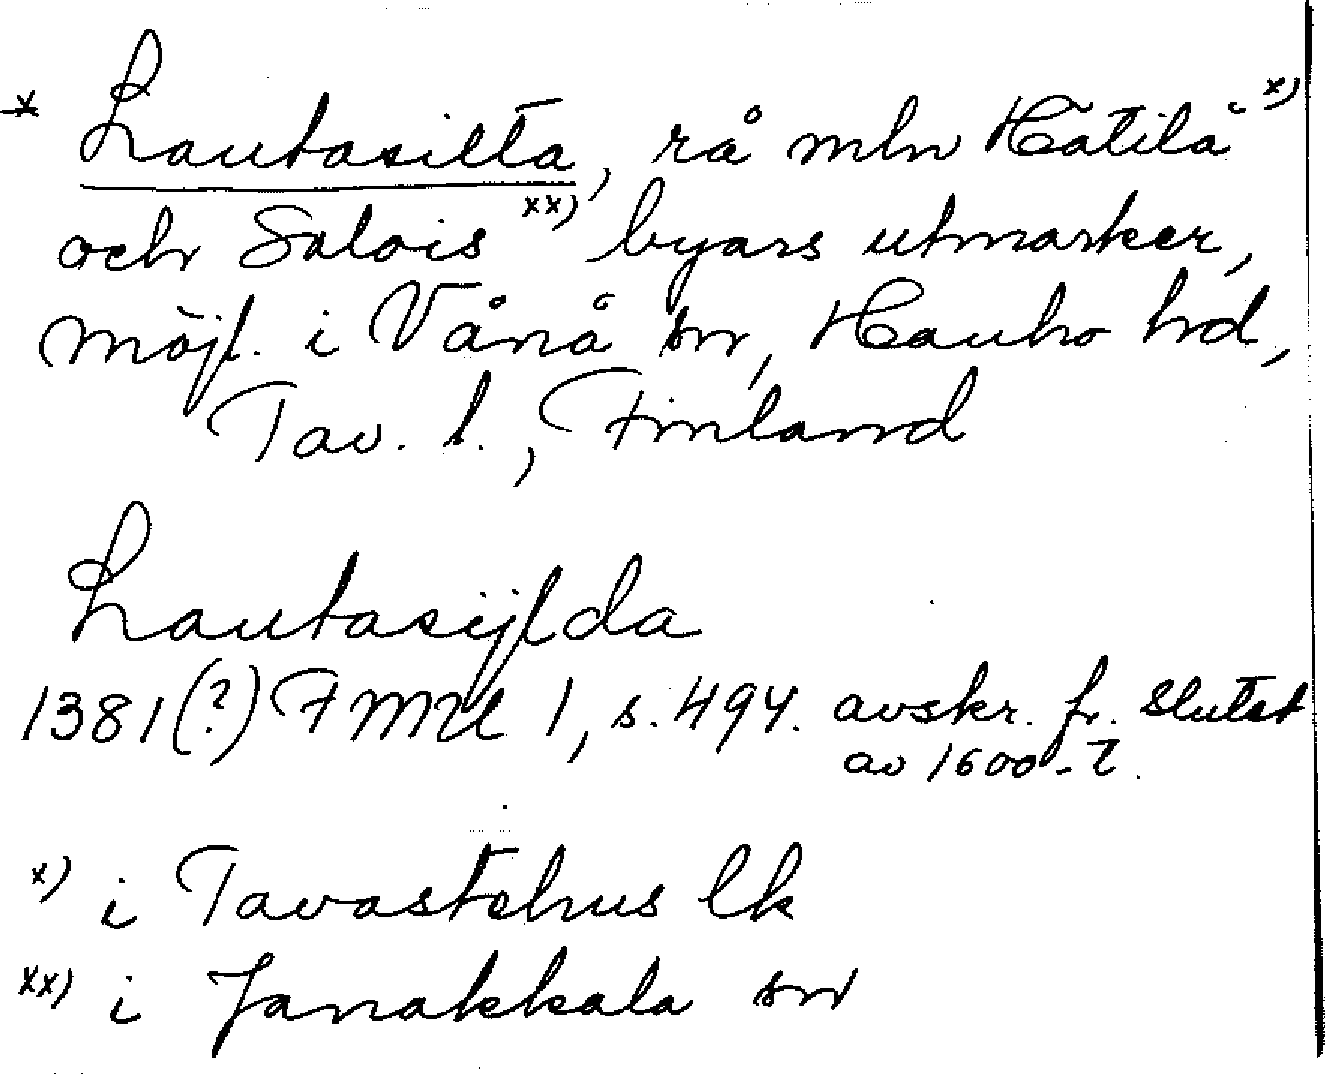 * Lautasilta, rå mln Hätilä x)
och Salois xx) byars utmarker,
möjl. i Vånå sn, Hauho hd,
Tav. l., Finland
Lautasijlda
1381(?) FMU 1, s. 494. avskr. fr. slutet
av 1600-t.
x) i Tavastehus lk
xx) i Janakkala sn